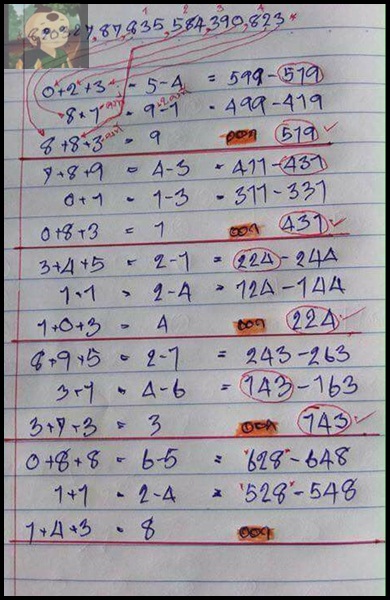 27,87,835,584,390,823*
0+2+3 = 5-4 = 599-519
8+1 = 9-1 = 499-419
8+8+3 = 9 ออก 519 ✓
7+8+9 = 4-3 = 411-431
0+1 = 1-3 = 311-331
0+8+3 = 1 ออก 431 ✓
3+4+5 = 2-1 = 224-244
1+1 = 2-4 = 124-144
1+0+3 = 4 ออก 224 ✓
8+9+5 = 2-1 = 243-263
3+1 = 4-6 = 143-163
3+7+3 = 3 ออก 143 ✓
0+8+8 = 6-5 = "628"-648
1+1 = 2-4 = "528"-548
1+4+3 = 8 ออก